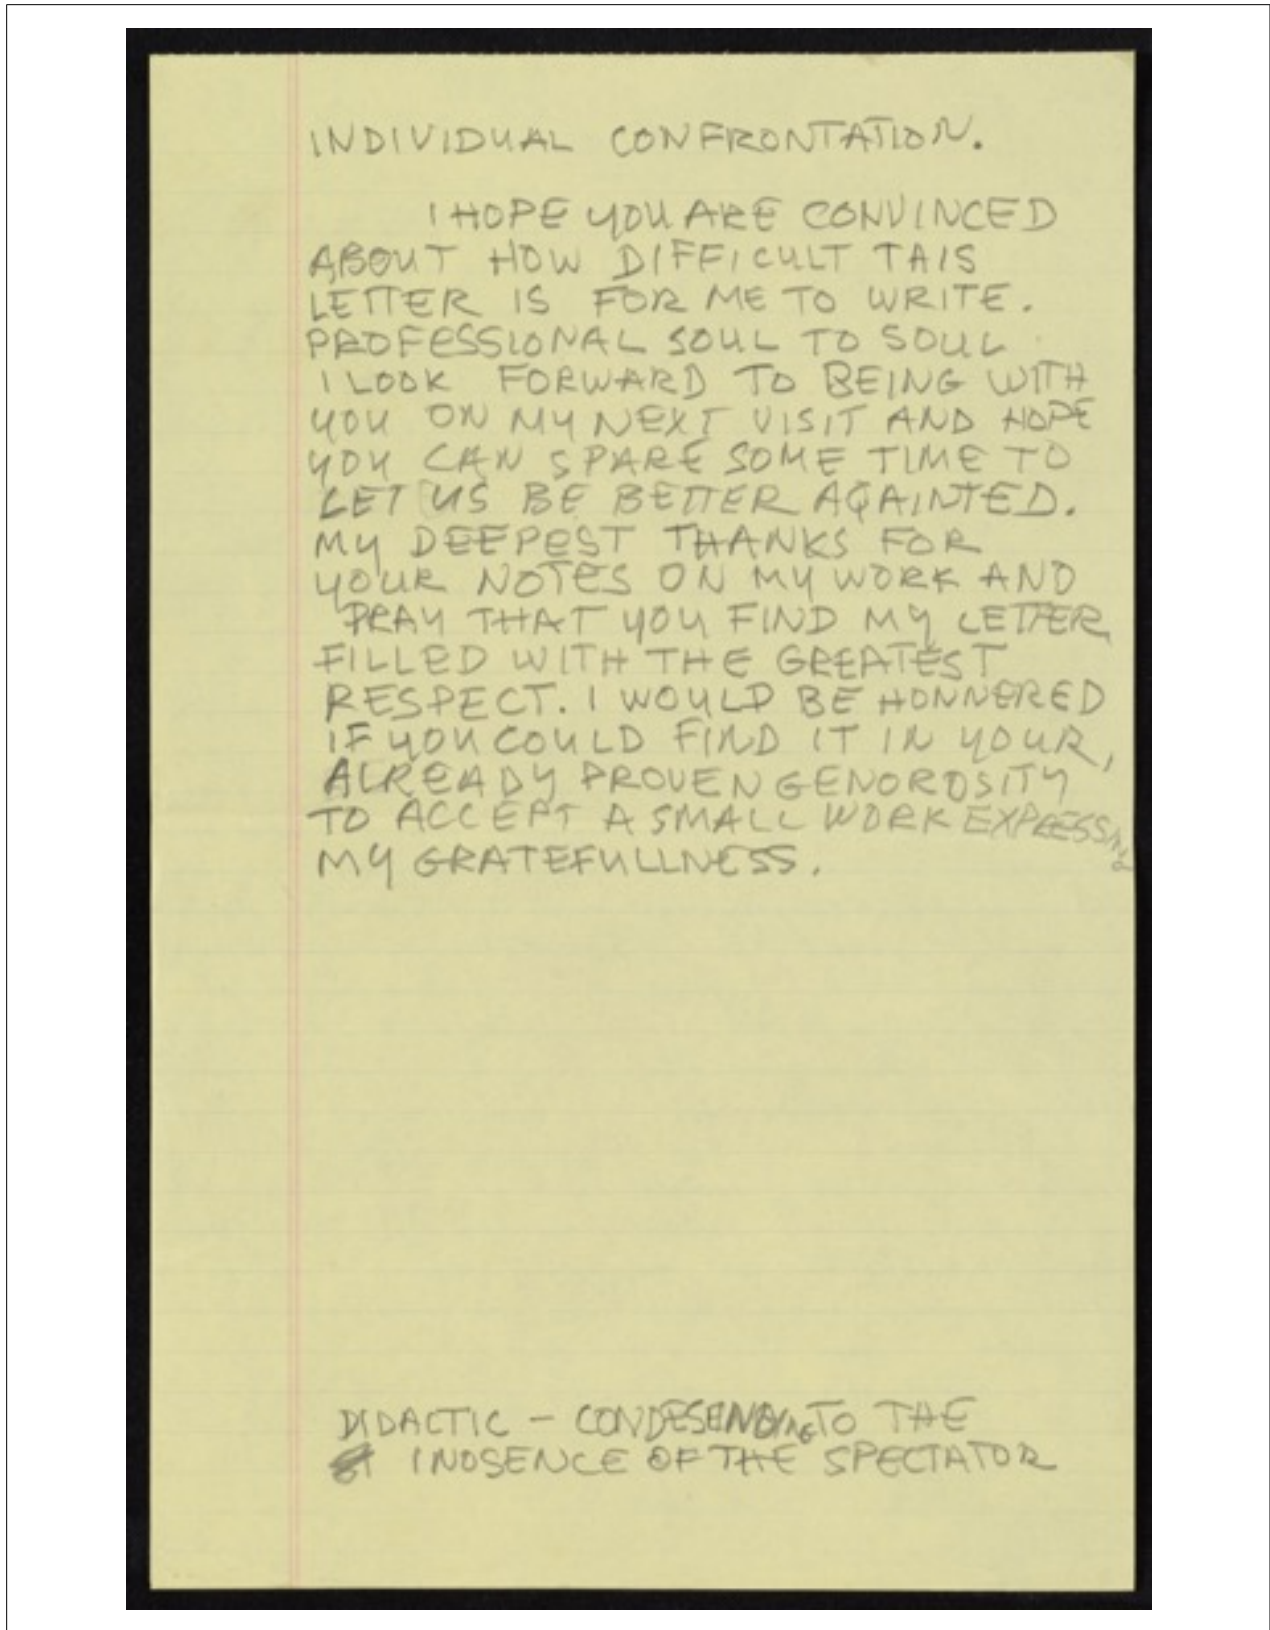 INDIVIDUAL CONFRONTATION.
I HOPE YOU ARE CONVINCED
ABOUT HOW DIFFICULT THIS
LETTER IS FOR ME TO WRITE.
PROFESSIONAL SOUL TO SOUL
I LOOK FORWARD TO BEING WITH
YOU ON MY NEXT VISIT AND HOPE
YOU CAN SPARE SOME TIME TO
LET US BE BETTER AQAINTED.
MY DEEPEST THANKS FOR
YOUR NOTES ON MY WORK AND
PRAY THAT YOU FIND MY LETTER
FILLED WITH THE GREATEST
RESPECT. I WOULD BE HONNERED
IF YOU COULD FIND IT IN YOUR,
ALREADY PROVEN GENOROSITY
TO ACCEPT A SMALL WORK EXPRESSING
MY GRATEFULLNESS.
DIDACTIC – CONDESENDING TO THE
INOSENCE OF THE SPECTATOR